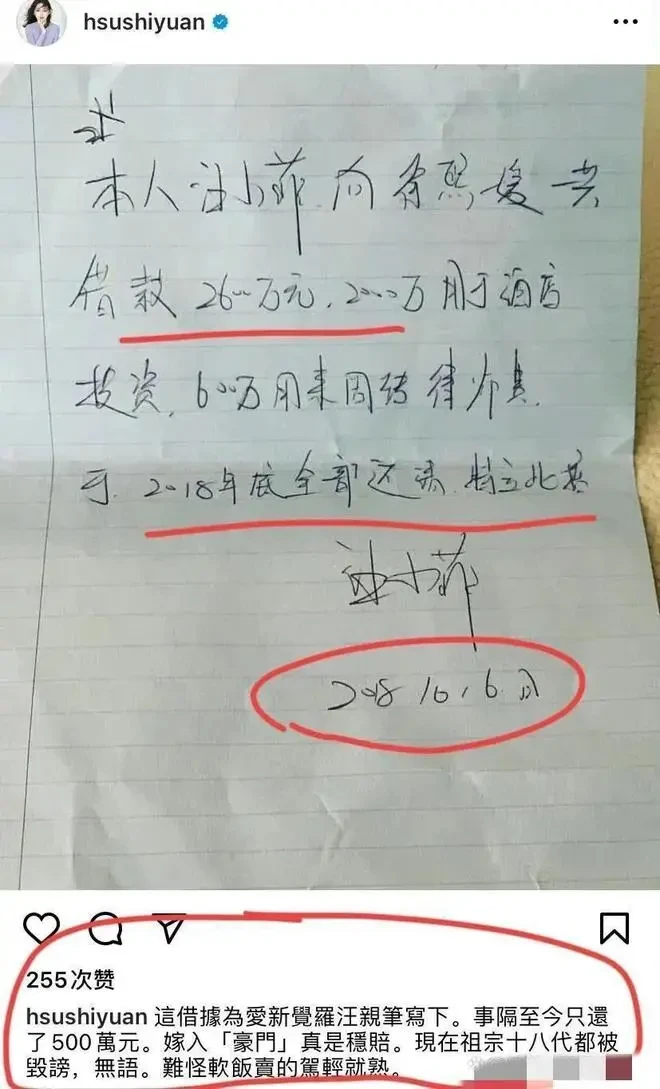 hsushiyuan
本人汪小菲向徐熙媛共
借款2600万元,2000万用于酒店
投资,600万用来周转律师费
于2018年底全部还清.特立此据
汪小菲
255次赞
hsushiyuan 這借據為愛新覺羅汪親筆寫下。事隔至今只還
了500萬元。嫁入「豪門」真是穩賠。現在祖宗十八代都被
毀謗,無語。難怪軟飯賣的駕輕就熟。